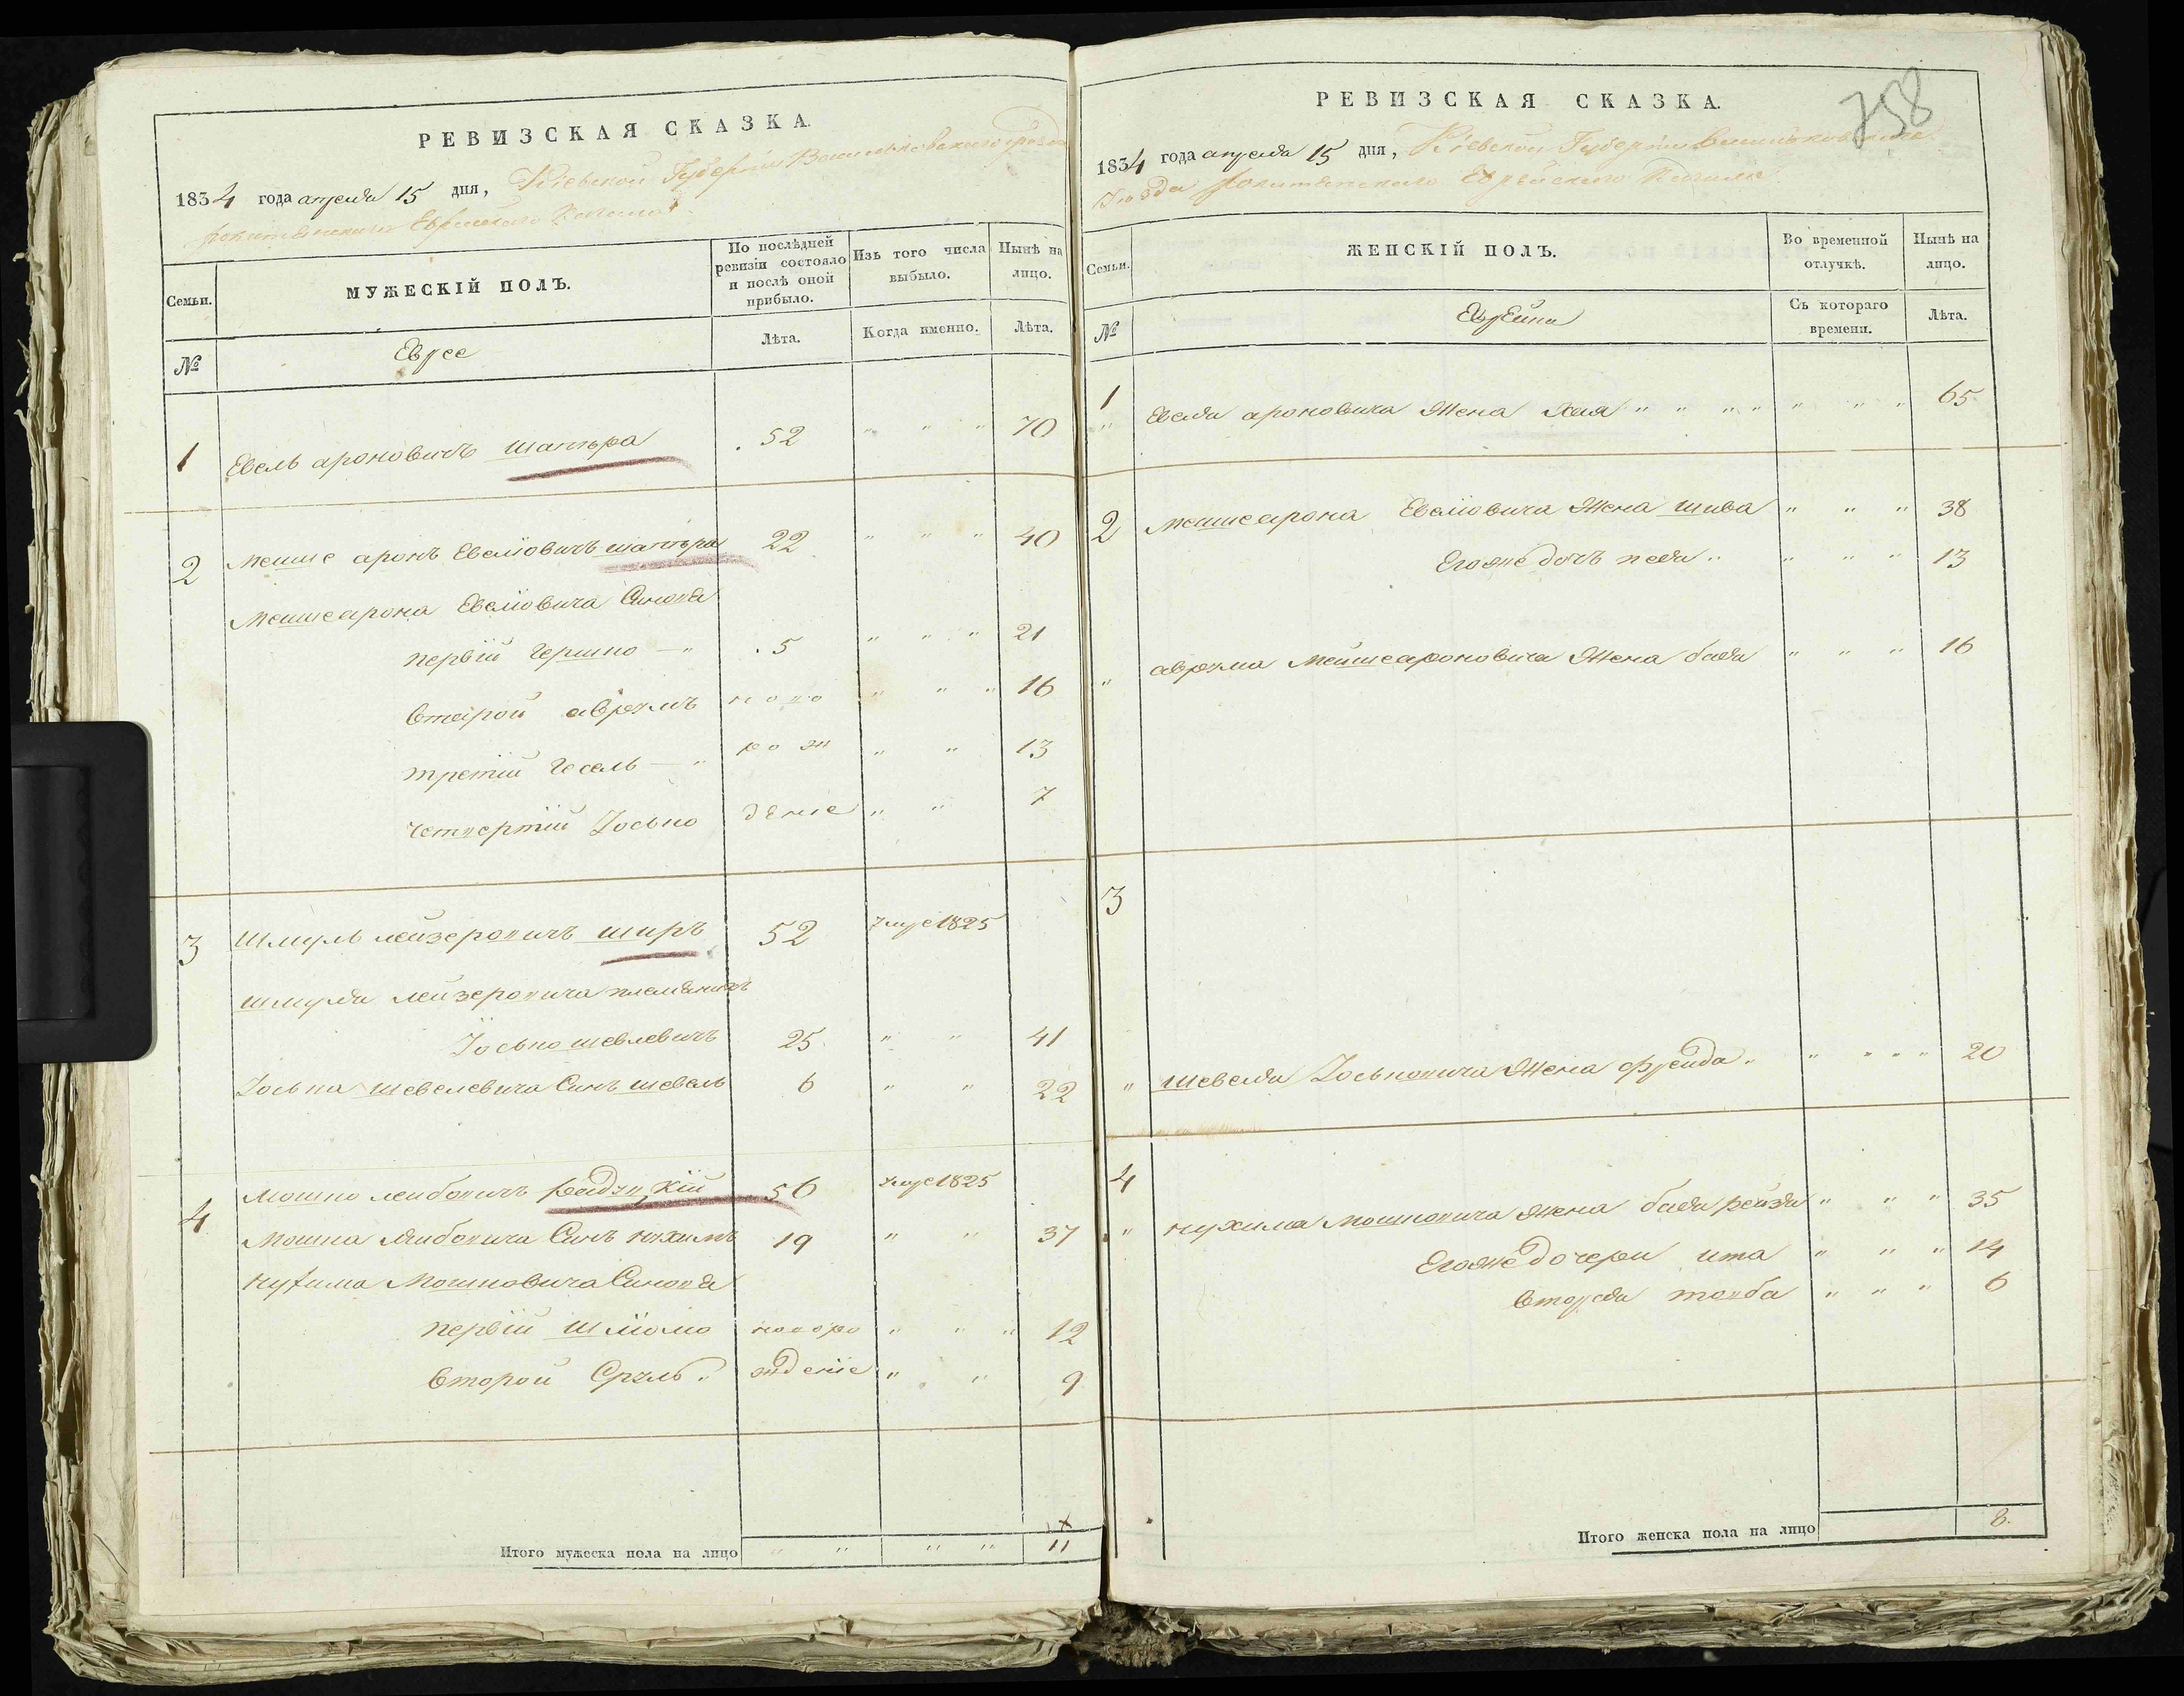 РЕВИЗСКАЯ СКАЗКА.
1834 года апреля 15 дня, Кіевской Губерніи Васильковского уезда
рокитянского Еврейского Кагала.
Семьи.
МУЖЕСКІЙ ПОЛЪ.
По послѣдней ревизіи состояло и послѣ оной прибыло.
Изъ того числа выбыло.
Нынѣ на лицо.
№
Еврее
Лѣта.
Когда именно.
Лѣта.
1 Евель ароновичъ шапѣра 52 " " " 70
2 Мешие аронъ Евеліовичъ шапѣра 22 " " " 40
Мешиеарона Евеліовича Синовя
первій Гершко — " 5 " " " 21
второй аврумъ ново " " " 16
третій Іосель — " рож " " 13
четвертій Іосько деніе " " 7
3 Шмуль лейзеровичъ ширъ 52 умре 1825
шмуля лейзеровича племяникъ
Іосько шевлевичъ 25 " " 41
Іоська шевелевича Синъ шевель 6 " " 22
4 Мошко лейбовичъ радзѣцкій 56 умре 1825
Мошка лейбовича Синъ нухимъ 19 " " 37
нухима Мошковича Синовя
первій шліомо новоро " " " 12
второй Сруль " жденіе " " 9
Итого мужеска пола на лицо " " " " 11
758
РЕВИЗСКАЯ СКАЗКА.
1834 года апреля 15 дня, Кіевской Губерніи Васильковского
Уезда рокитянского Еврейского Кагала.
Семьи.
ЖЕНСКІЙ ПОЛЪ.
Во временной отлучкѣ.
Нынѣ на лицо.
№
Еврейки
Съ котораго времени.
Лѣта.
1 " Евеля ароновича Жена Хая " " " " " " " 65
2 Мешиеарона Евеліовича Жена шива " " " 38
Егоже дочъ песя " " " " 13
" аврума Мейшеароновича Жена бася " " " 16
3
" шевеля Іоськовича Жена фрейда " " " " " 20
4
" нухима Мошковича Жена бася рейзя " " " 35
Егоже дочери ита " " " 14
вторая товба " " " 6
Итого женска пола на лицо 8.